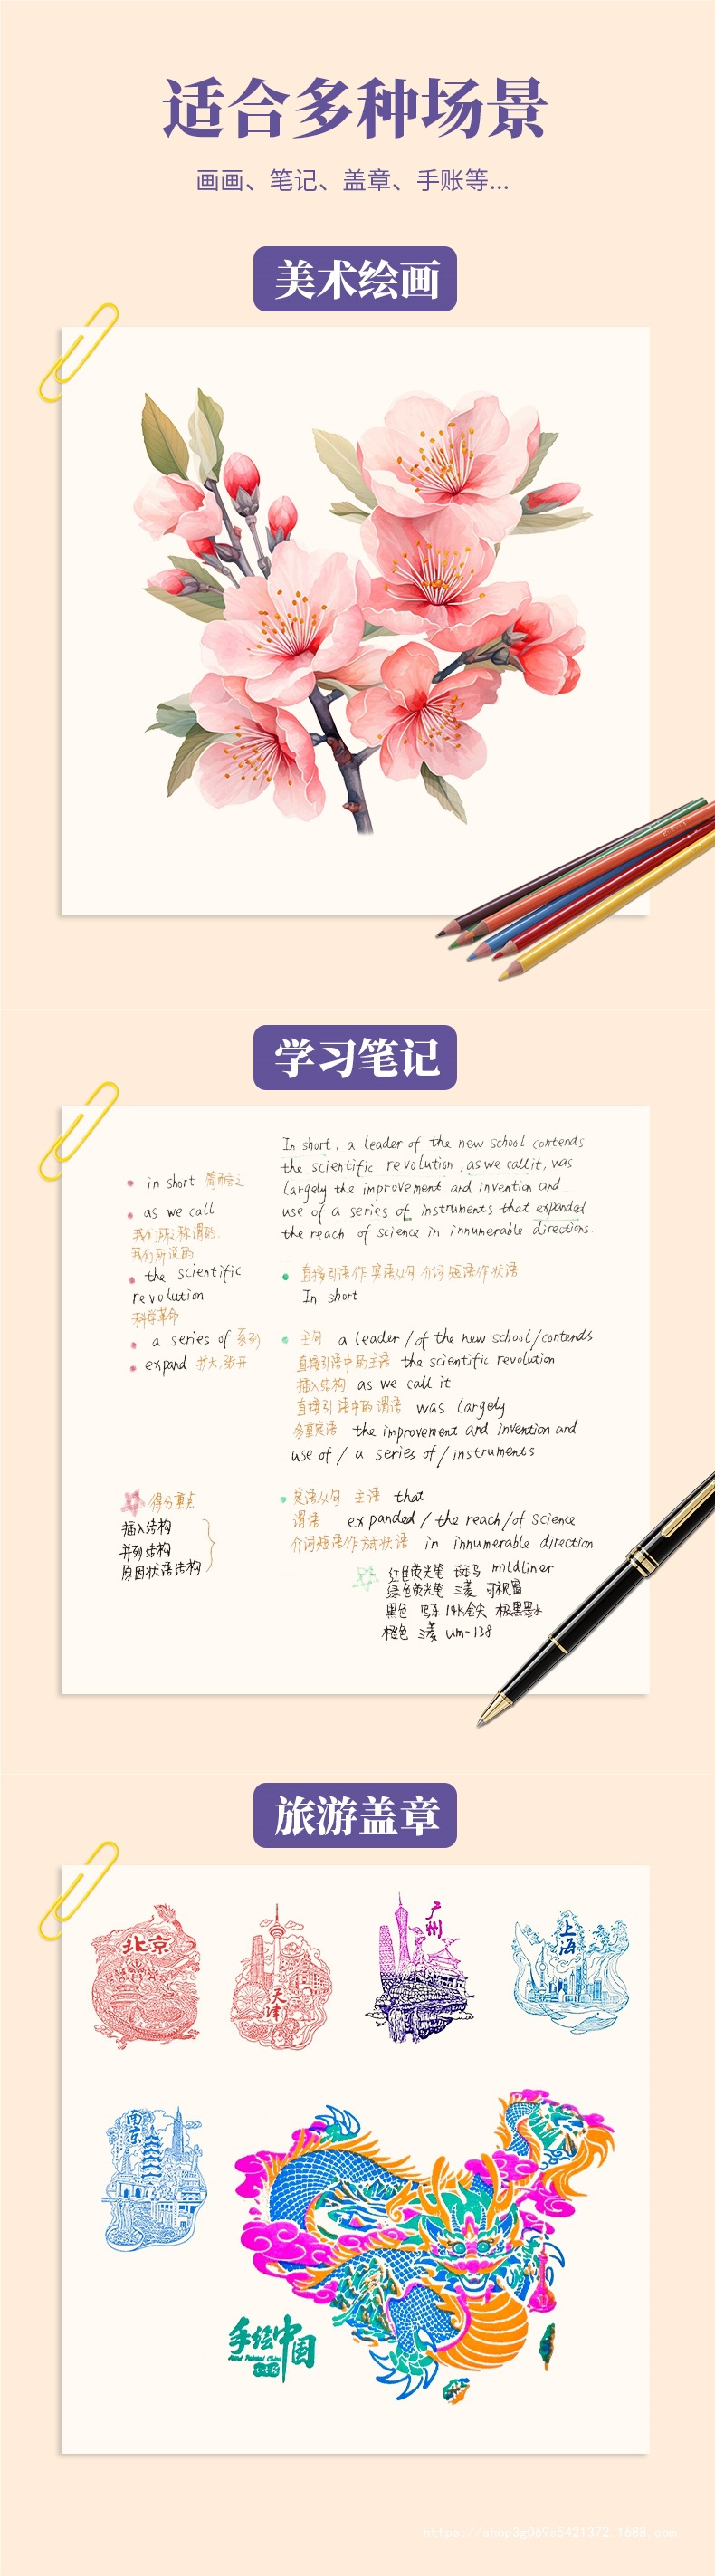 适合多种场景
画画、笔记、盖章、手账等...
美术绘画
学习笔记
In short, a leader of the new school contends
the scientific revolution, as we call it, was
largely the improvement and invention and
use of a series of instruments that expanded
the reach of science in innumerable directions.
in short 简而言之
as we call
我们所之称谓的,
我们所说的
the scientific
revolution
科学革命
a series of 系列
expand 扩大,张开
直接引语作宾语从句 介词短语作状语
In short
主句 a leader / of the new school / contends
直接引语中的主语 the scientific revolution
插入结构 as we call it
直接引语中的谓语 was largely
多重定语 the improvement and invention and
use of / a series of / instruments
定语从句 主语 that
谓语 expanded / the reach / of science
介词短语作方式状语 in innumerable direction
得分重点
插入结构
并列结构
原因状语结构
红色荧光笔 斑马 mildliner
绿色荧光笔 三菱 可视窗
黑色 写乐 14k金尖 极黑墨水
橙色 三菱 um-138
旅游盖章
北京
天津
广州
上海
南京
手绘中国
Hand Painted China
https://shop3g069s5421372.1688.com